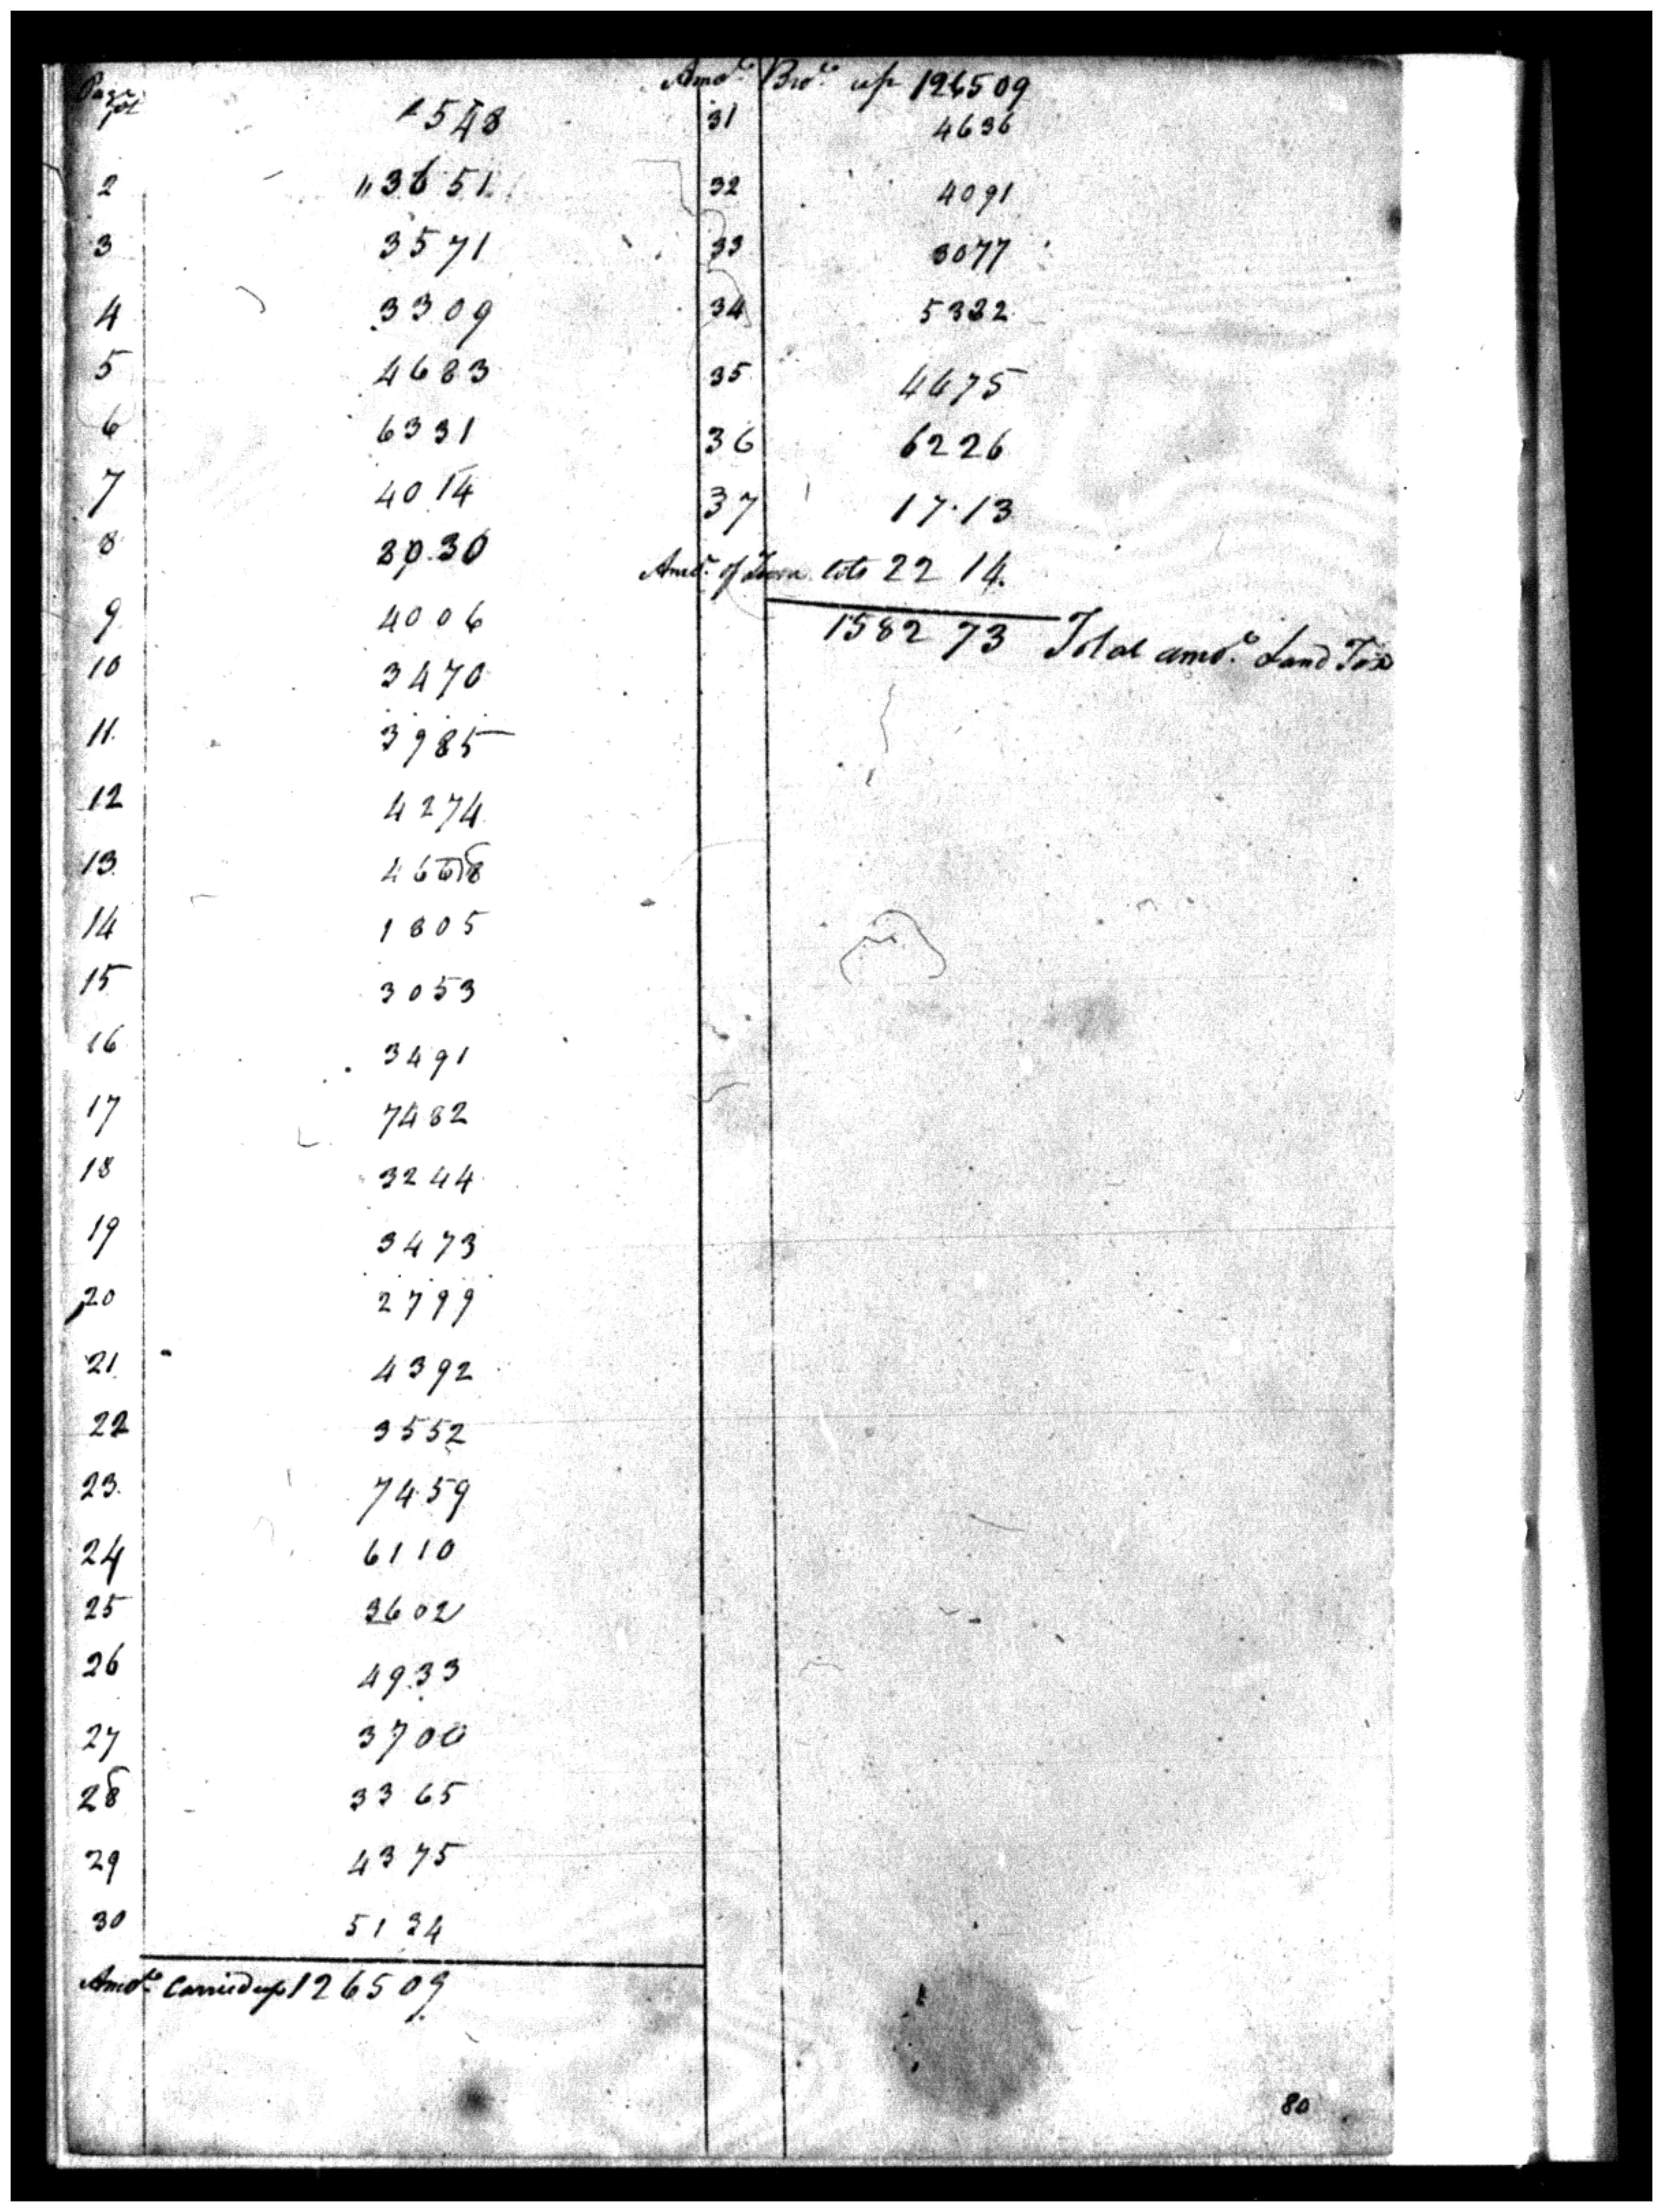 Page
1st 1548
2 " 3651
3 3571
4 3309
5 4683
6 6331
7 4014
8 3030
9 4006
10 3470
11. 3985
12 4274
13. 4668
14 1805
15 3053
16 3491
17 7482
18 3244
19 3473
20 2799
21. 4392
22 3552
23. 7459
24 6110
25 3602
26 4933
27 3700
28 3365
29 4375
30 5134
Amot. Carried up 126509
Amot. Brot. up 126509
31 4636
32 4091
33 3077
34 5332
35 4475
36 6226
37 17.13
Amot. of Town lots 22 14.
1582 73 Total amot. Land Tax
80